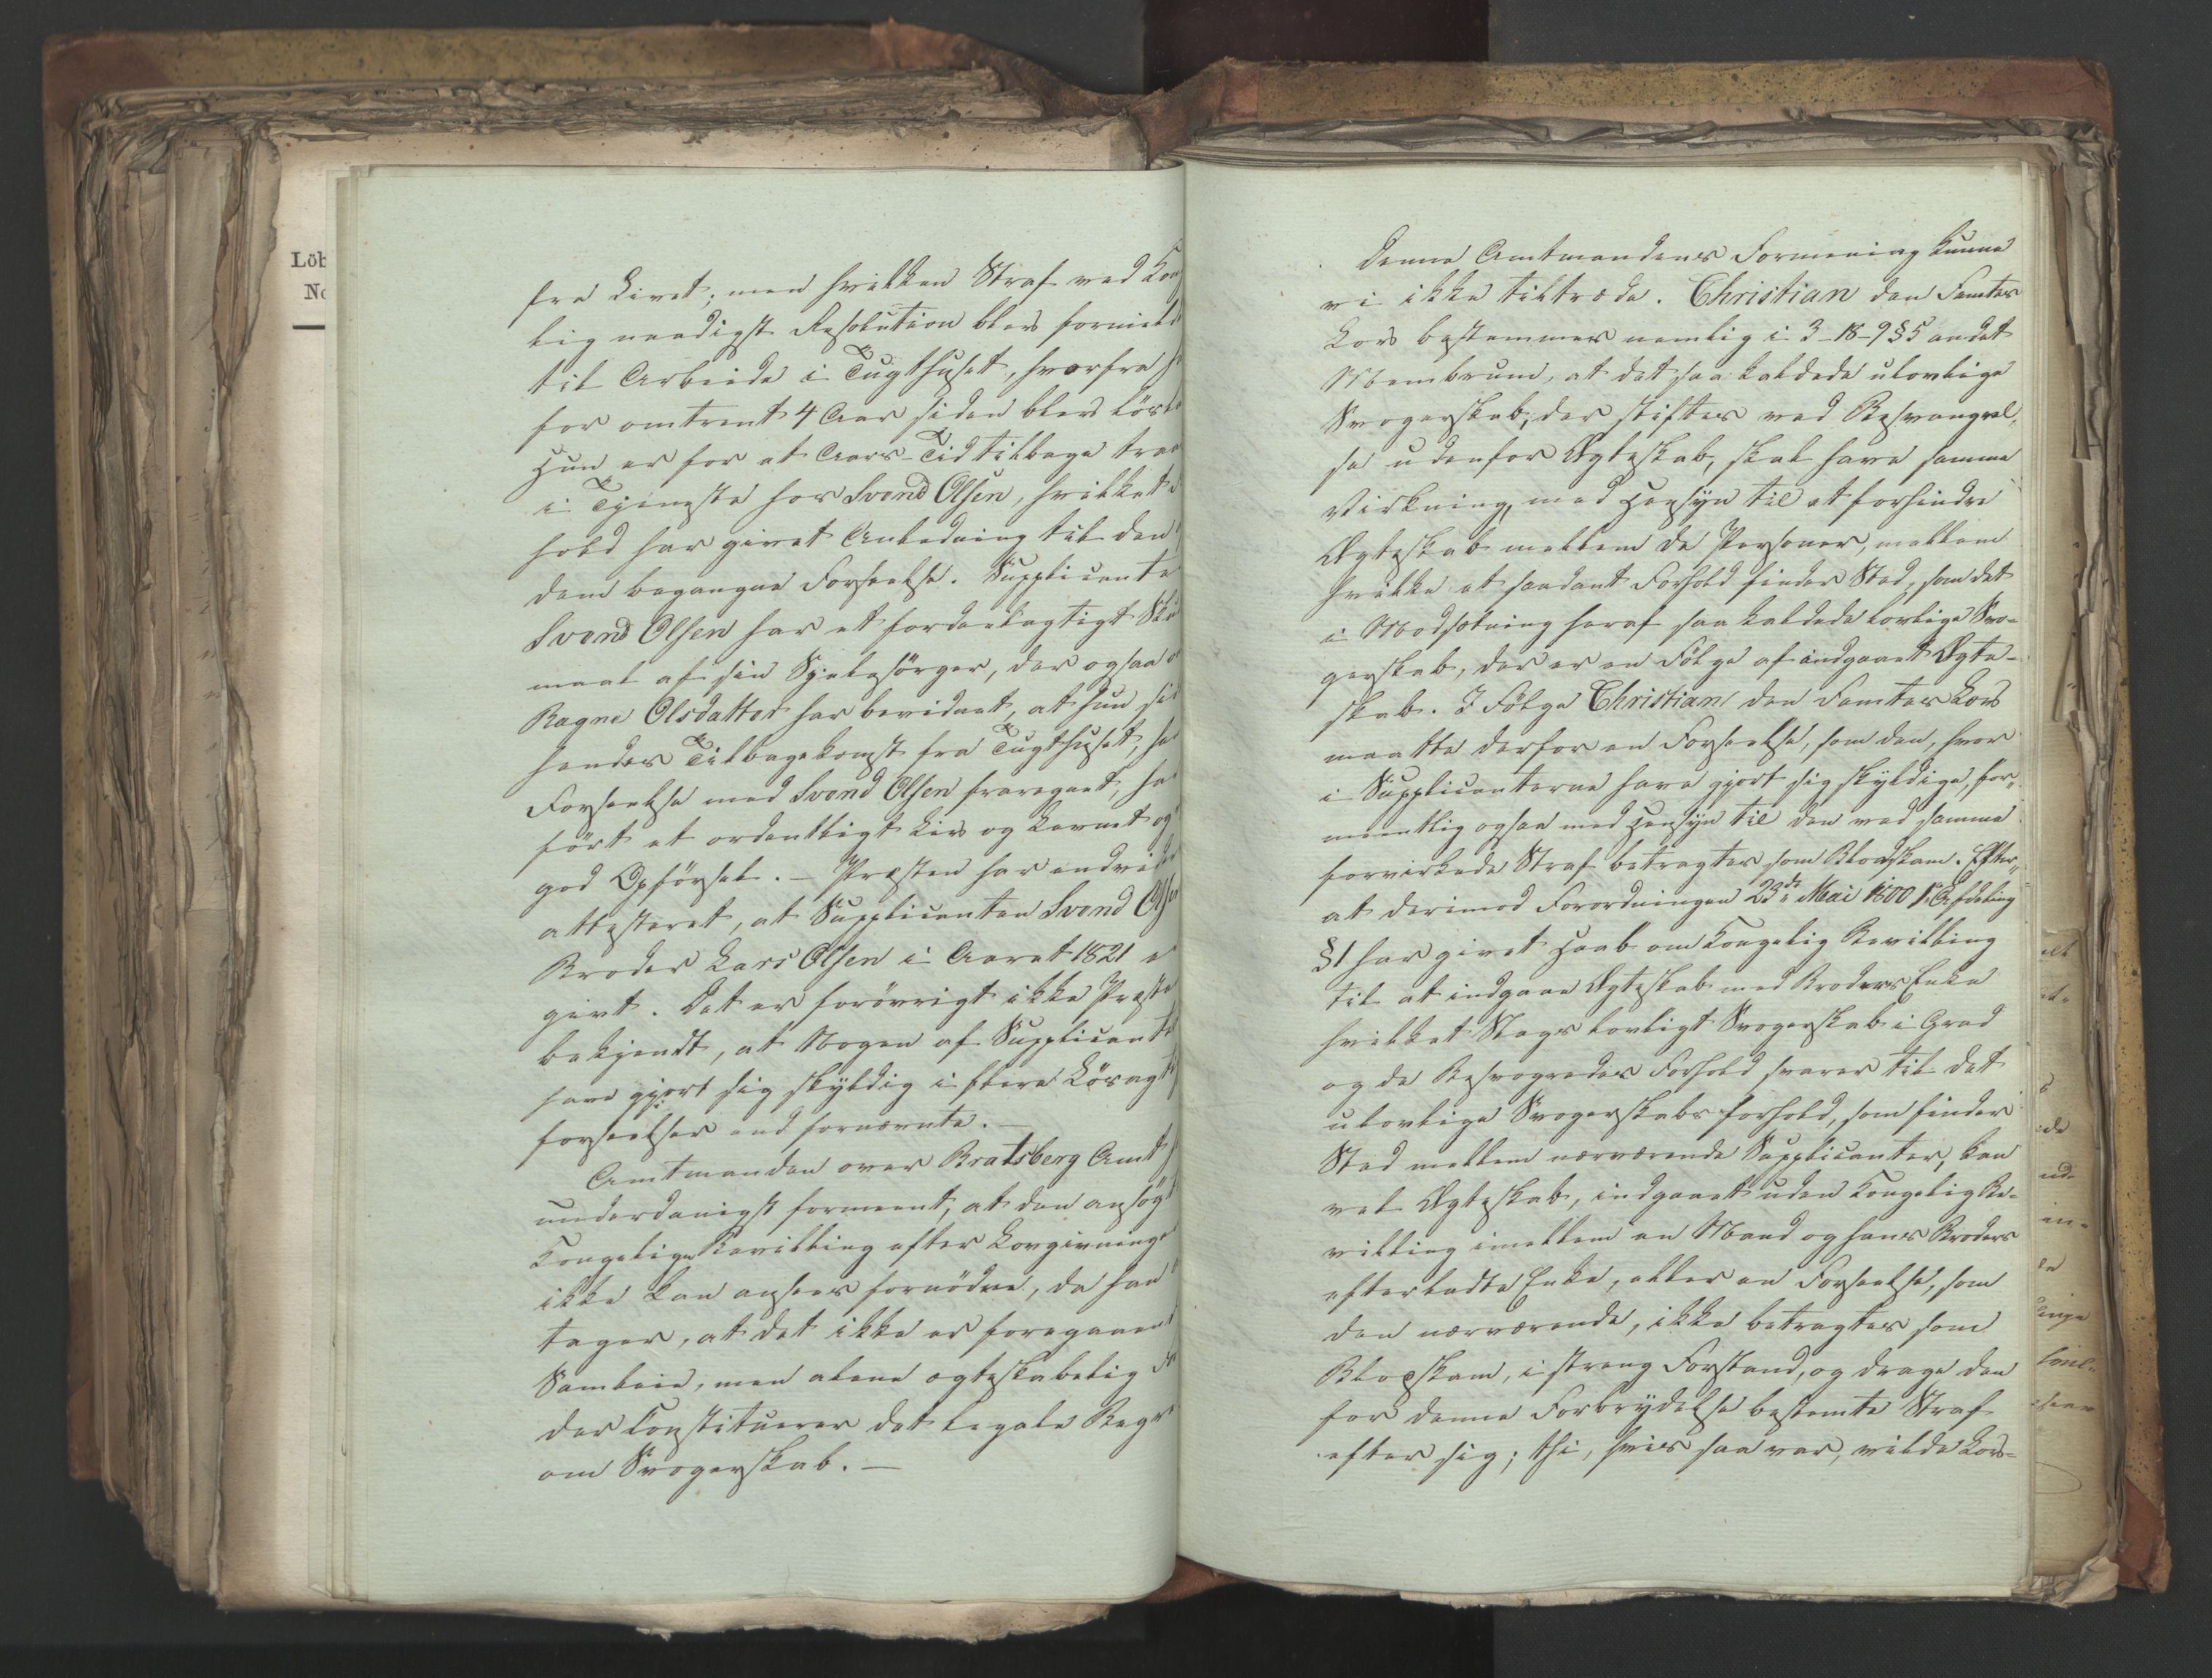 Löb
No
fra Livet; men hvilken Straf ved Kon
lig naadigst Resolution blev formild
til Arbeide i Tugthuset, hvorfra h
for omtrent 4 Aar siden blev lösl
Hun er for et Aars-Tid tilbage traa
i Tjeneste hos Svend Olsen, hvilket
hold har givet Anledning til den
dem begangne Forseelse. Supplicante
Svend Olsen har et fordeelagtigt Sku
maal af sin Sjelesörger, der ogsaa
Ragne Olsdatter har bevidnet, at hun si
hendes Tilbagekomst fra Tugthuset, ha
Forseelse med Svend Olsen fraregnet, ha
fört et ordentligt Liv og levnet og
god Opförsel. – Præsten har endvide
attesteret, at Supplicanten Svend Olse
Broder Lars Olsen i Aaret 1821 e
givt. Det er forövrigt ikke Præste
bekjendt, at Nogen af Supplicante
have gjort sig skyldig i flere Lösagti
forseelser end fornævnte. –
Amtmanden over Bratsberg Amt
underdanigst formeent, at den ansög
Kongelige Bevilling efter Lovgivninge
ikke kan ansees fornöden, da han
tager, at det ikke er foregaaen
Samleie, men alene ægteskabelig
der Constituerer det legale Begre
om Svogerskab. –
Denne Amtmandens Formening kunne
vi ikke tiltræde. Christian den Femtes
Lov bestemmer nemlig i 3–18–9 § 5 andet
Membrum, at det saa kaldede ulovlige
Svogerskab, der stiftes ved Besvangrel,
se udenfor Ægteskab, skal have samme
Virkning, med Hensyn til at forhindre
Ægteskab mellem de Personer, mellem
hvilke et saadant Forhold finder Sted, som det
i Modsætning heraf saa kaldede lovlige Svo-
gerskab, der er en Fölge af indgaaet Ægte-
skab. I Fölge Christian den Femtes Lov
maatte derfor en Forseelse, som den, hvor
i Supplicanterne have gjort sig skyldige, for,
meentlig ogsaa med Hensyn til den ved samme
forvirkede Straf betragtes som Blodskam. Efter,
at derimod Forordningen 23de Mai 1800 1. Afdeling
§ 1 har givet Haab om Kongelig Bevilling
til at indgaae Ægteskab med Broders Enke
hvilket Slags lovligt Svogerskab i Grad
og de Besvogredes Forhold svarer til det
ulovlige Svogerskabs forhold, som finder
Sted mellem nærværende Supplicanter, kan
vel Ægteskab, indgaaet uden Kongelig Be-
villing imellem en Mand og hans Broders
efterladte Enke, eller en Forseelse, som
den nærværende, ikke betragtes som
Blodskam, i streng Forstand, og drage den
for denne Forbrydelse bestemte Straf
efter sig; thi, hvis saa var, vilde Lov-